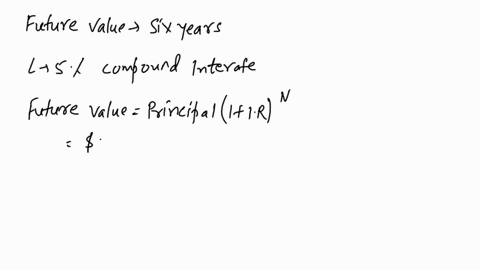 Future value → Six years
L→ 5 % compound Interafe
Future value = Principal (1+I.R)^N
= $.